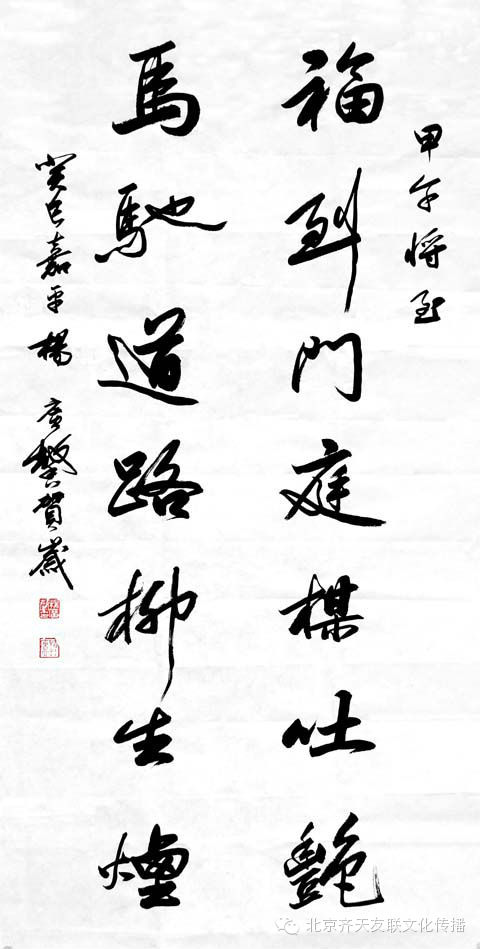 甲午将至
福到門庭楳吐艷
馬馳道路柳生煙
癸巳嘉平楊賀歲
北京齐天友联文化传播